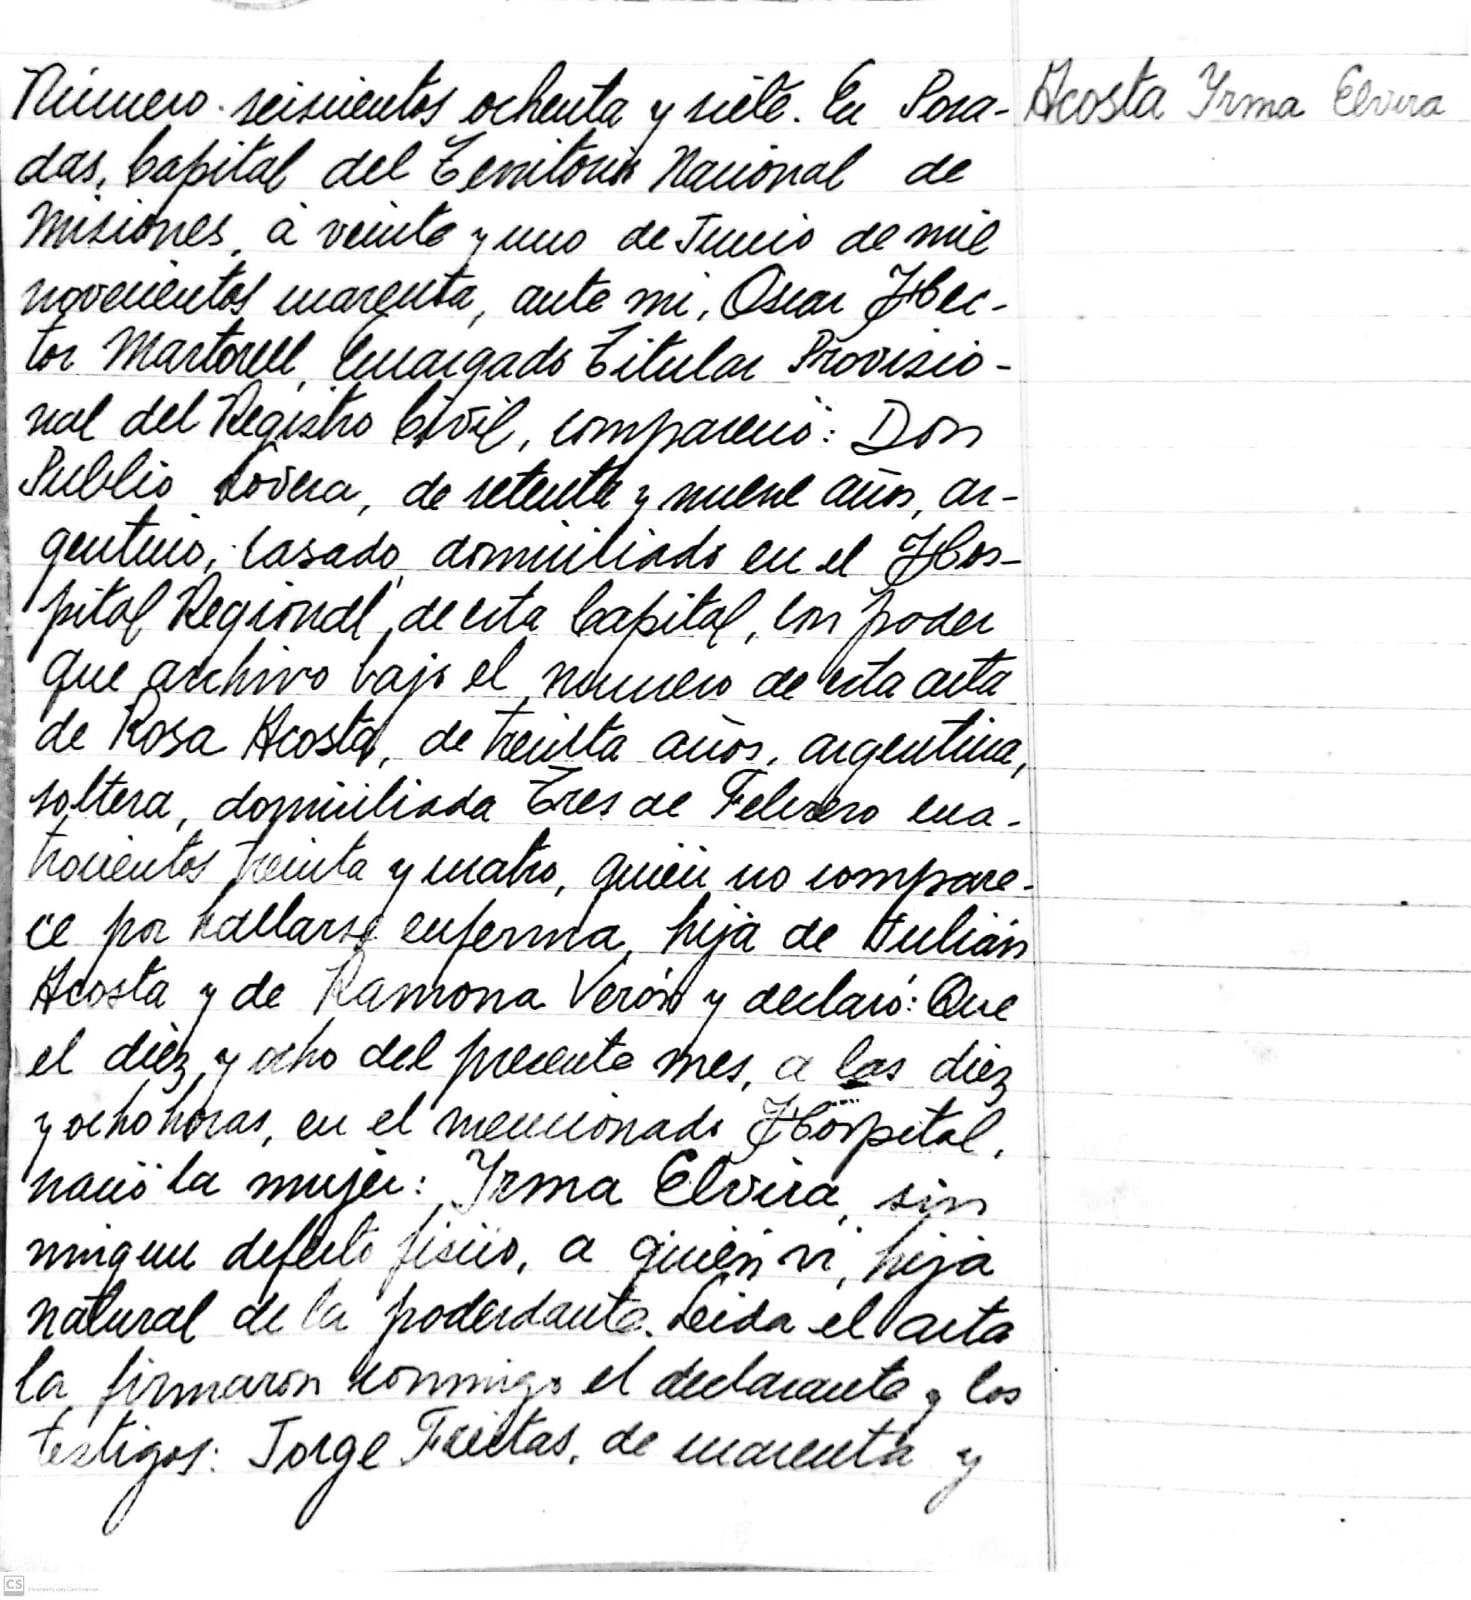 Número seiscientos ochenta y siete. En Posa-
Acosta Yrma Elvira
das, Capital del Territorio Nacional de
Misiones, á veinte y uno de Junio de mil
novecientos cuarenta, ante mi, Oscar Hec-
tor Martorell, Encargado Titular Provisio-
nal del Registro Civil, compareció: Don
Publio Lovera, de setenta y nueve años, ar-
gentino, casado, domiciliado en el Hos-
pital Regional, de esta Capital, con poder
que archivo bajo el numero de esta acta
de Rosa Acosta, de treinta años, argentina,
soltera, domiciliada Tres de Febrero cua-
trocientos treinta y cuatro, quién no compare-
ce por hallarse enferma, hija de Julián
Acosta y de Ramona Verón y declaró: Que
el diez y ocho del presente mes, a las diez
y ocho horas, en el mencionado Hospital,
nació la mujer: Yrma Elvira, sin
ningun defecto fisico, a quién vi, hija
natural de la poderdante. Leida el acta
la firmaron conmigo el declarante y los
testigos: Jorge Freitas, de cuarenta y
CS